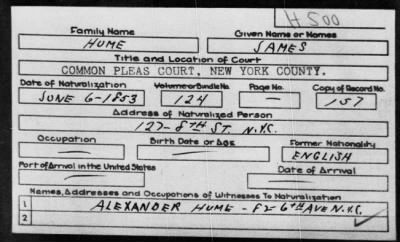 H 500
Family Name Given Name or Names
HUME JAMES
Title and Location of Court
COMMON PLEAS COURT, NEW YORK COUNTY.
Date of Naturalization Volume or Bundle No. Page No. Copy of Record No.
JUNE 6-1853 124 — 157
Address of Naturalized Person
127-8TH ST. N.Y.C.
Occupation Birth Date or Age Former Nationality
— — ENGLISH
Port of Arrival in the United States Date of Arrival
— —
Names, Addresses and Occupations of Witnesses To Naturalization
1 ALEXANDER HUME - 82-6TH AVE N.Y.C.
2